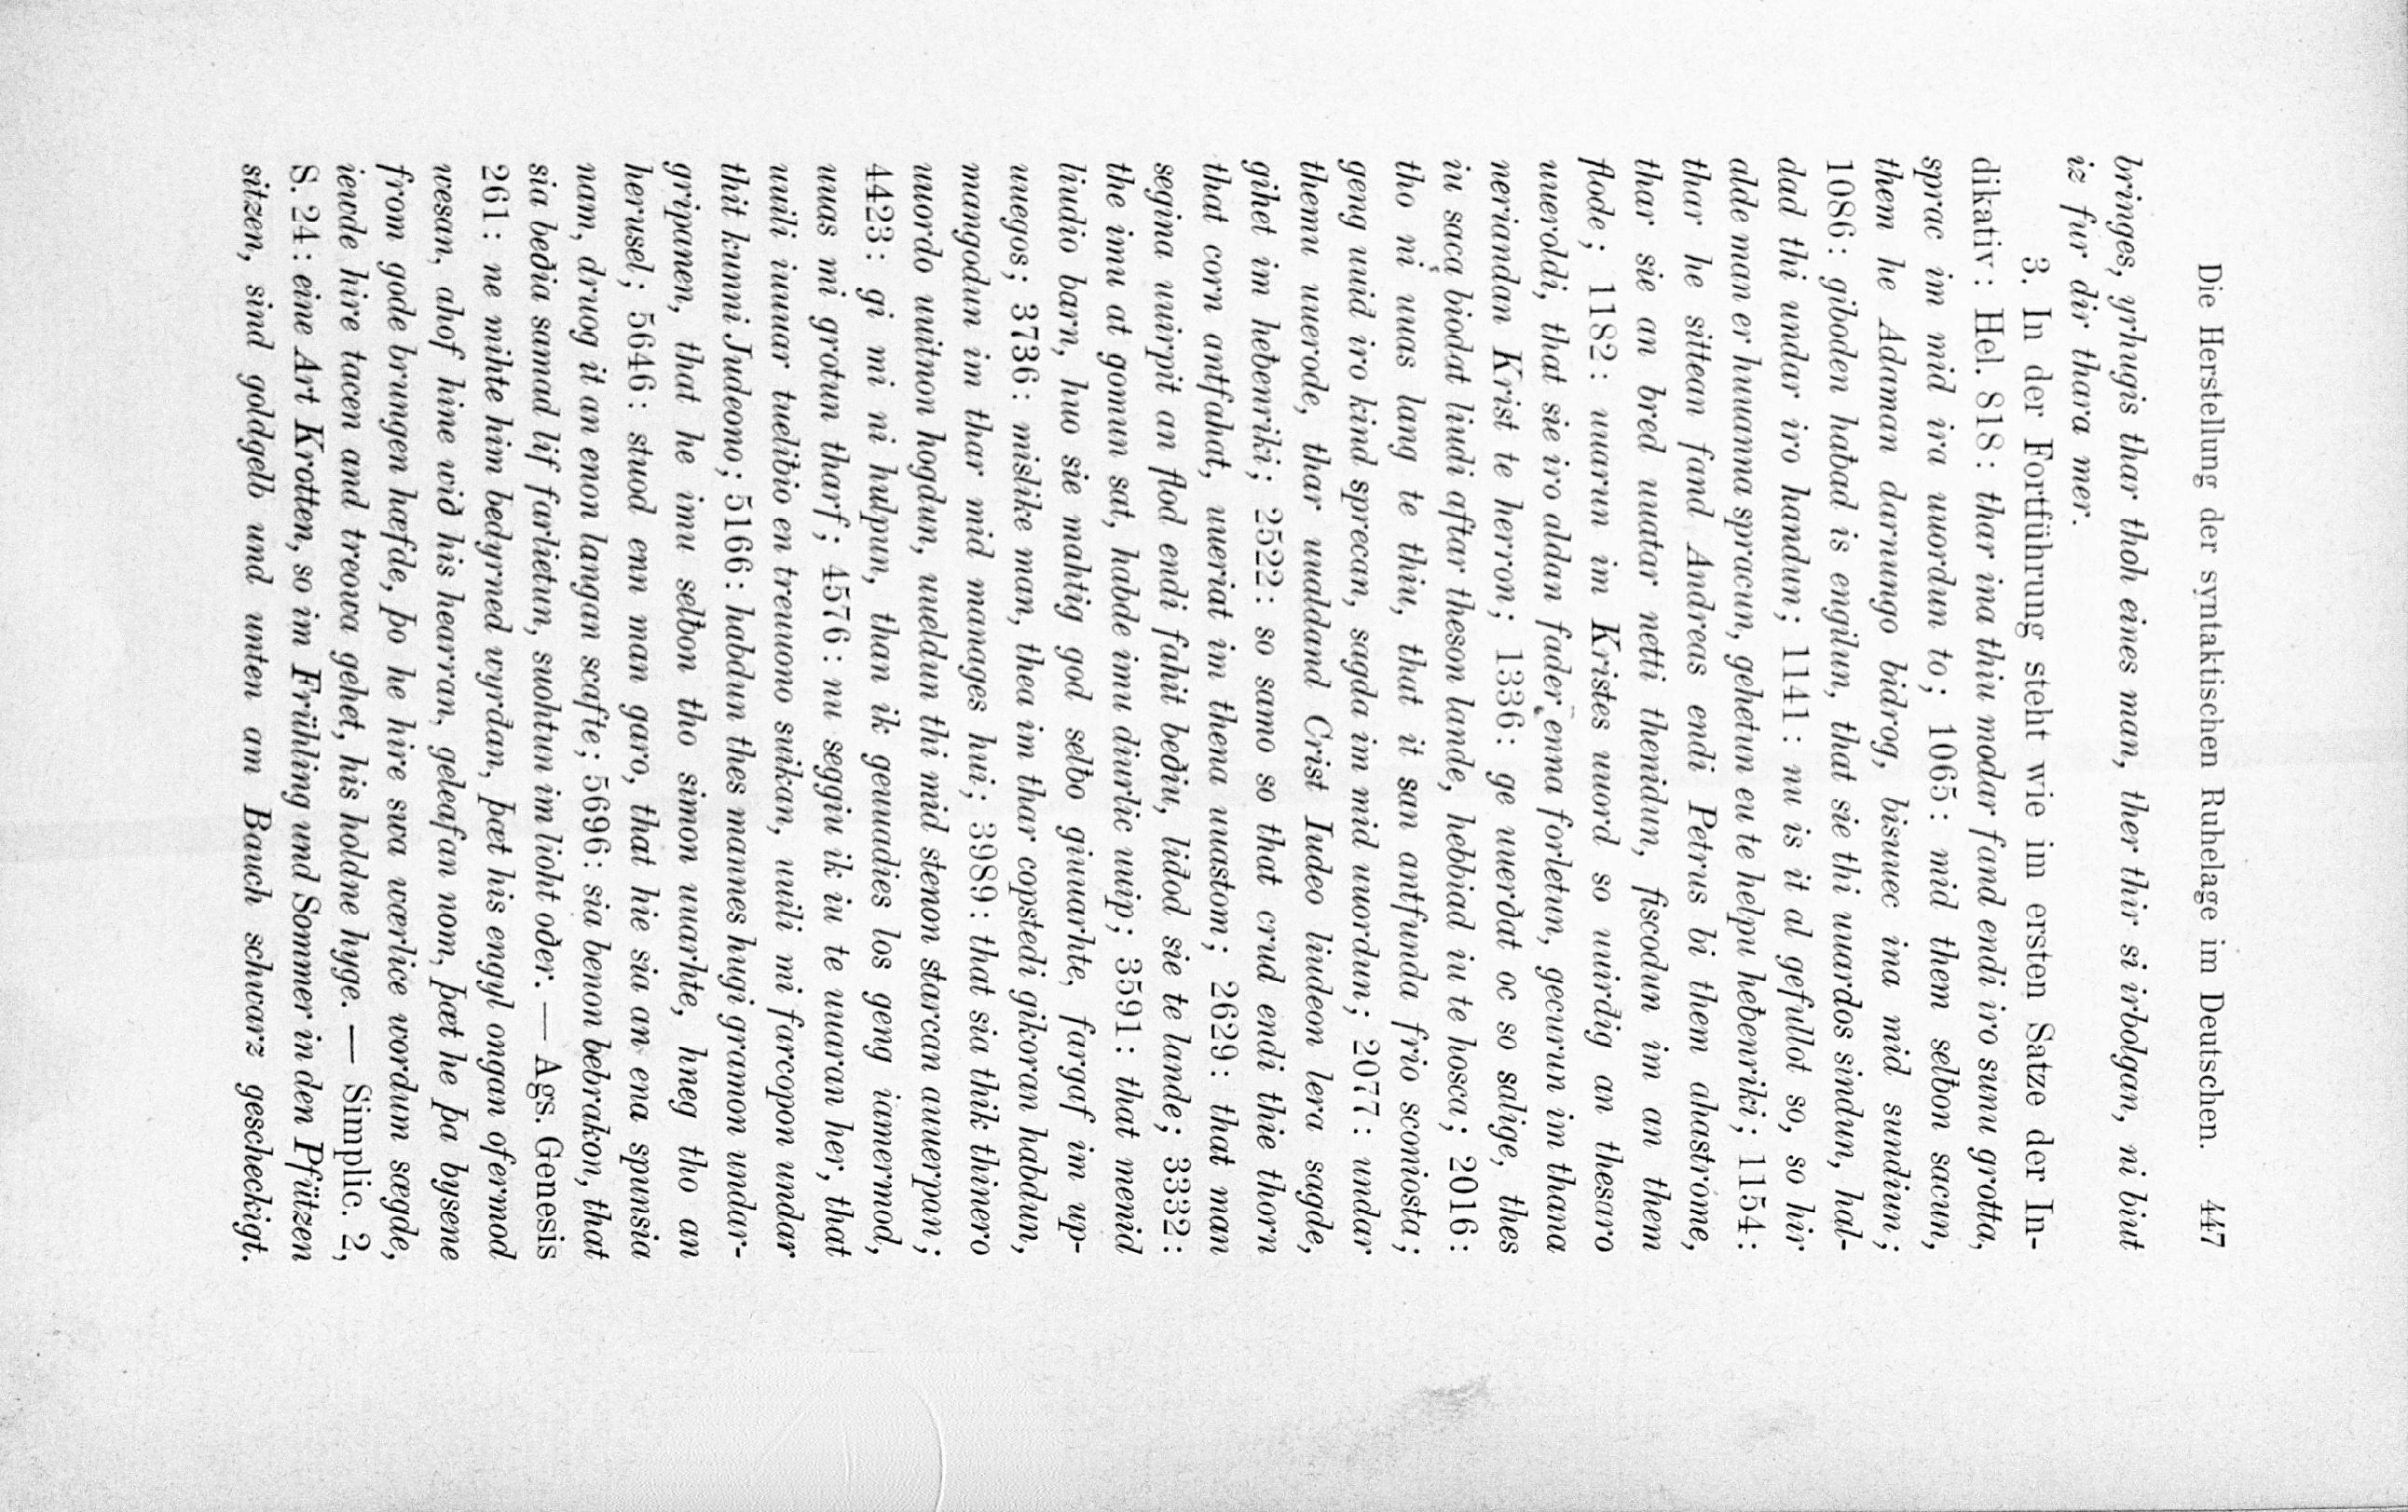 Die Herstellung der syntaktischen Ruhelage im Deutschen. 447
bringes, yrhugis thar thoh eines man, ther thir si irbolgan, ni biut
iz fur dir thara mer.
3. In der Fortführung steht wie im ersten Satze der In-
dikativ: Hel. 818: thar ina thiu modar fand endi iro sunu grotta,
sprac im mid ira uuordun to; 1065: mid them selƀon sacun,
them he Adaman darnungo bidrog, bisuuec ina mid sundiun;
1086: giboden haƀad is engilun, that sie thi uuardos sindun, hal-
dad thi undar iro handun; 1141: nu is it al gefullot so, so hir
alde man er huuanna spracun, gehetun eu te helpu heƀenriki; 1154:
thar he sittean fand Andreas endi Petrus bi them ahastrome,
thar sie an bred uuatar netti thenidun, fiscodun im an them
flode; 1182: uuarun im Kristes uuord so uuirðig an thesaro
uueroldi, that sie iro aldan fader enna forletun, gecurun im thana
neriandan Krist te herron; 1336: ge uuerðat oc so salige, thes
iu saca biodat liudi aftar theson lande, hebbiad iu te hosca; 2016:
tho ni uuas lang te thiu, that it san antfunda frio sconiosta;
geng uuid iro kind sprecan, sagda im mid uuordun; 2077: undar
themu uuerode, thar uualdand Crist Iudeo liudeon lera sagde,
gihet im heƀenriki; 2522: so samo so that crud endi thie thorn
that corn antfahat, uueriat im thena uuastom; 2629: that man
segina uuirpit an flod endi fahit beðiu, liðod sie te lande; 3332:
the imu at gomun sat, habde imu diurlic uuip; 3591: that menid
liudio barn, huo sie mahtig god selƀo giuuarhte, fargaf im up-
uuegos; 3736: mislike man, thea im thar copstedi gikoran habdun,
mangodun im thar mid manages hui; 3989: that sia thik thinero
uuordo uuitnon hogdun, uueldun thi mid stenon starcan auuerpan;
4423: gi mi ni hulpun, than ik geuuadies los geng iamermod,
uuas mi grotun tharf; 4576: nu seggiu ik iu te uuaran her, that
uuili iuuuar tueliƀio en treuuono suikan, uuili mi farcopon undar
thit kunni Judeono; 5166: habdun thes mannes hugi gramon undar-
gripanen, that he imu selƀon tho simon uuarhte, hneg tho an
herusel; 5646: stuod enn man garo, that hie sia an ena spunsia
nam, druog it an enon langan scafte; 5696: sia benon bebrakon, that
sia beðia samad lif farlietun, suohtun im lioht oðer. — Ags. Genesis
261: ne mihte him bedyrned wyrðan, þæt his engyl ongan ofermod
wesan, ahof hine wið his hearran, geleafan nom, þæt he þa bysene
from gode brungen hæfde, þo he hire swa wærlice wordum sægde,
iewde hire tacen and treowa gehet, his holdne hyge. — Simplic. 2,
S. 24: eine Art Krotten, so im Frühling und Sommer in den Pfützen
sitzen, sind goldgelb und unten am Bauch schwarz gescheckigt.